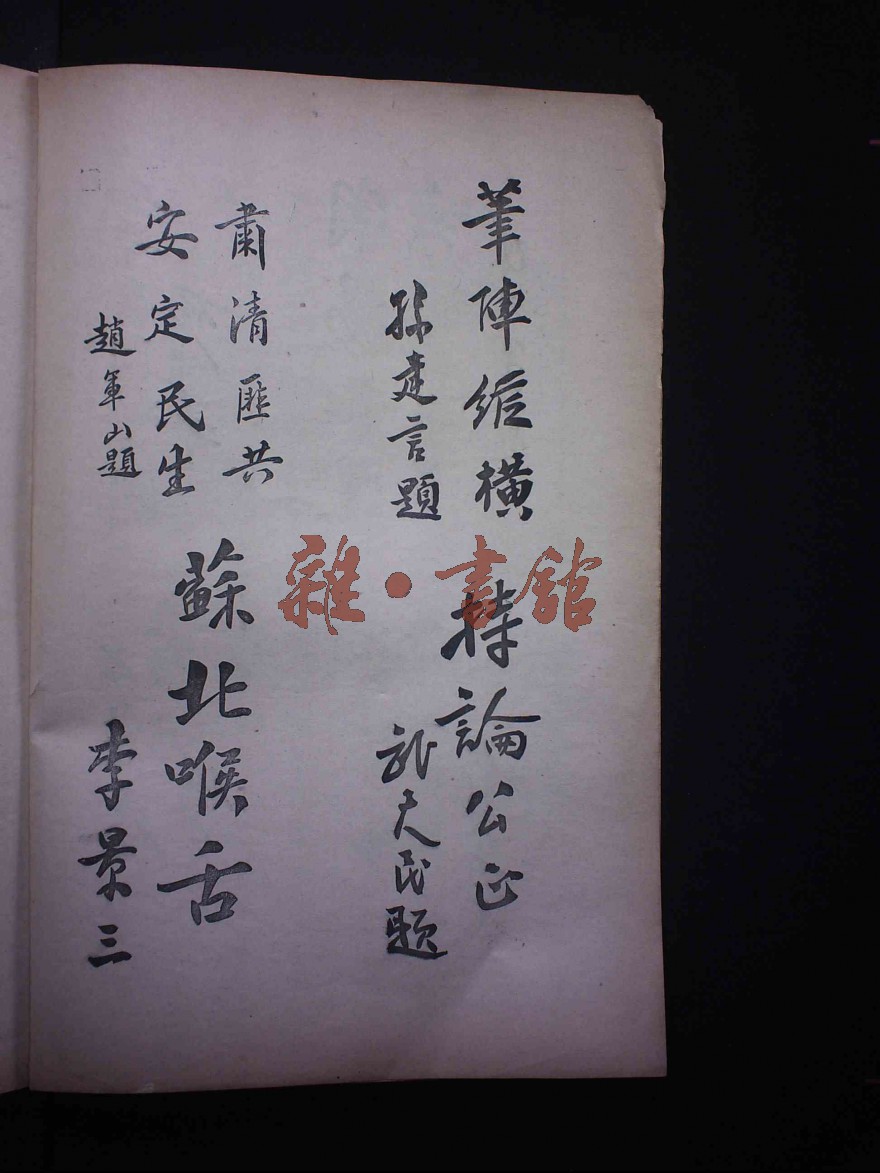 筆陣縱橫
孫建言題
持論公正
張天民題
肅清匪共
安定民生
趙軍山題
蘇北喉舌
李景三
雜·書館